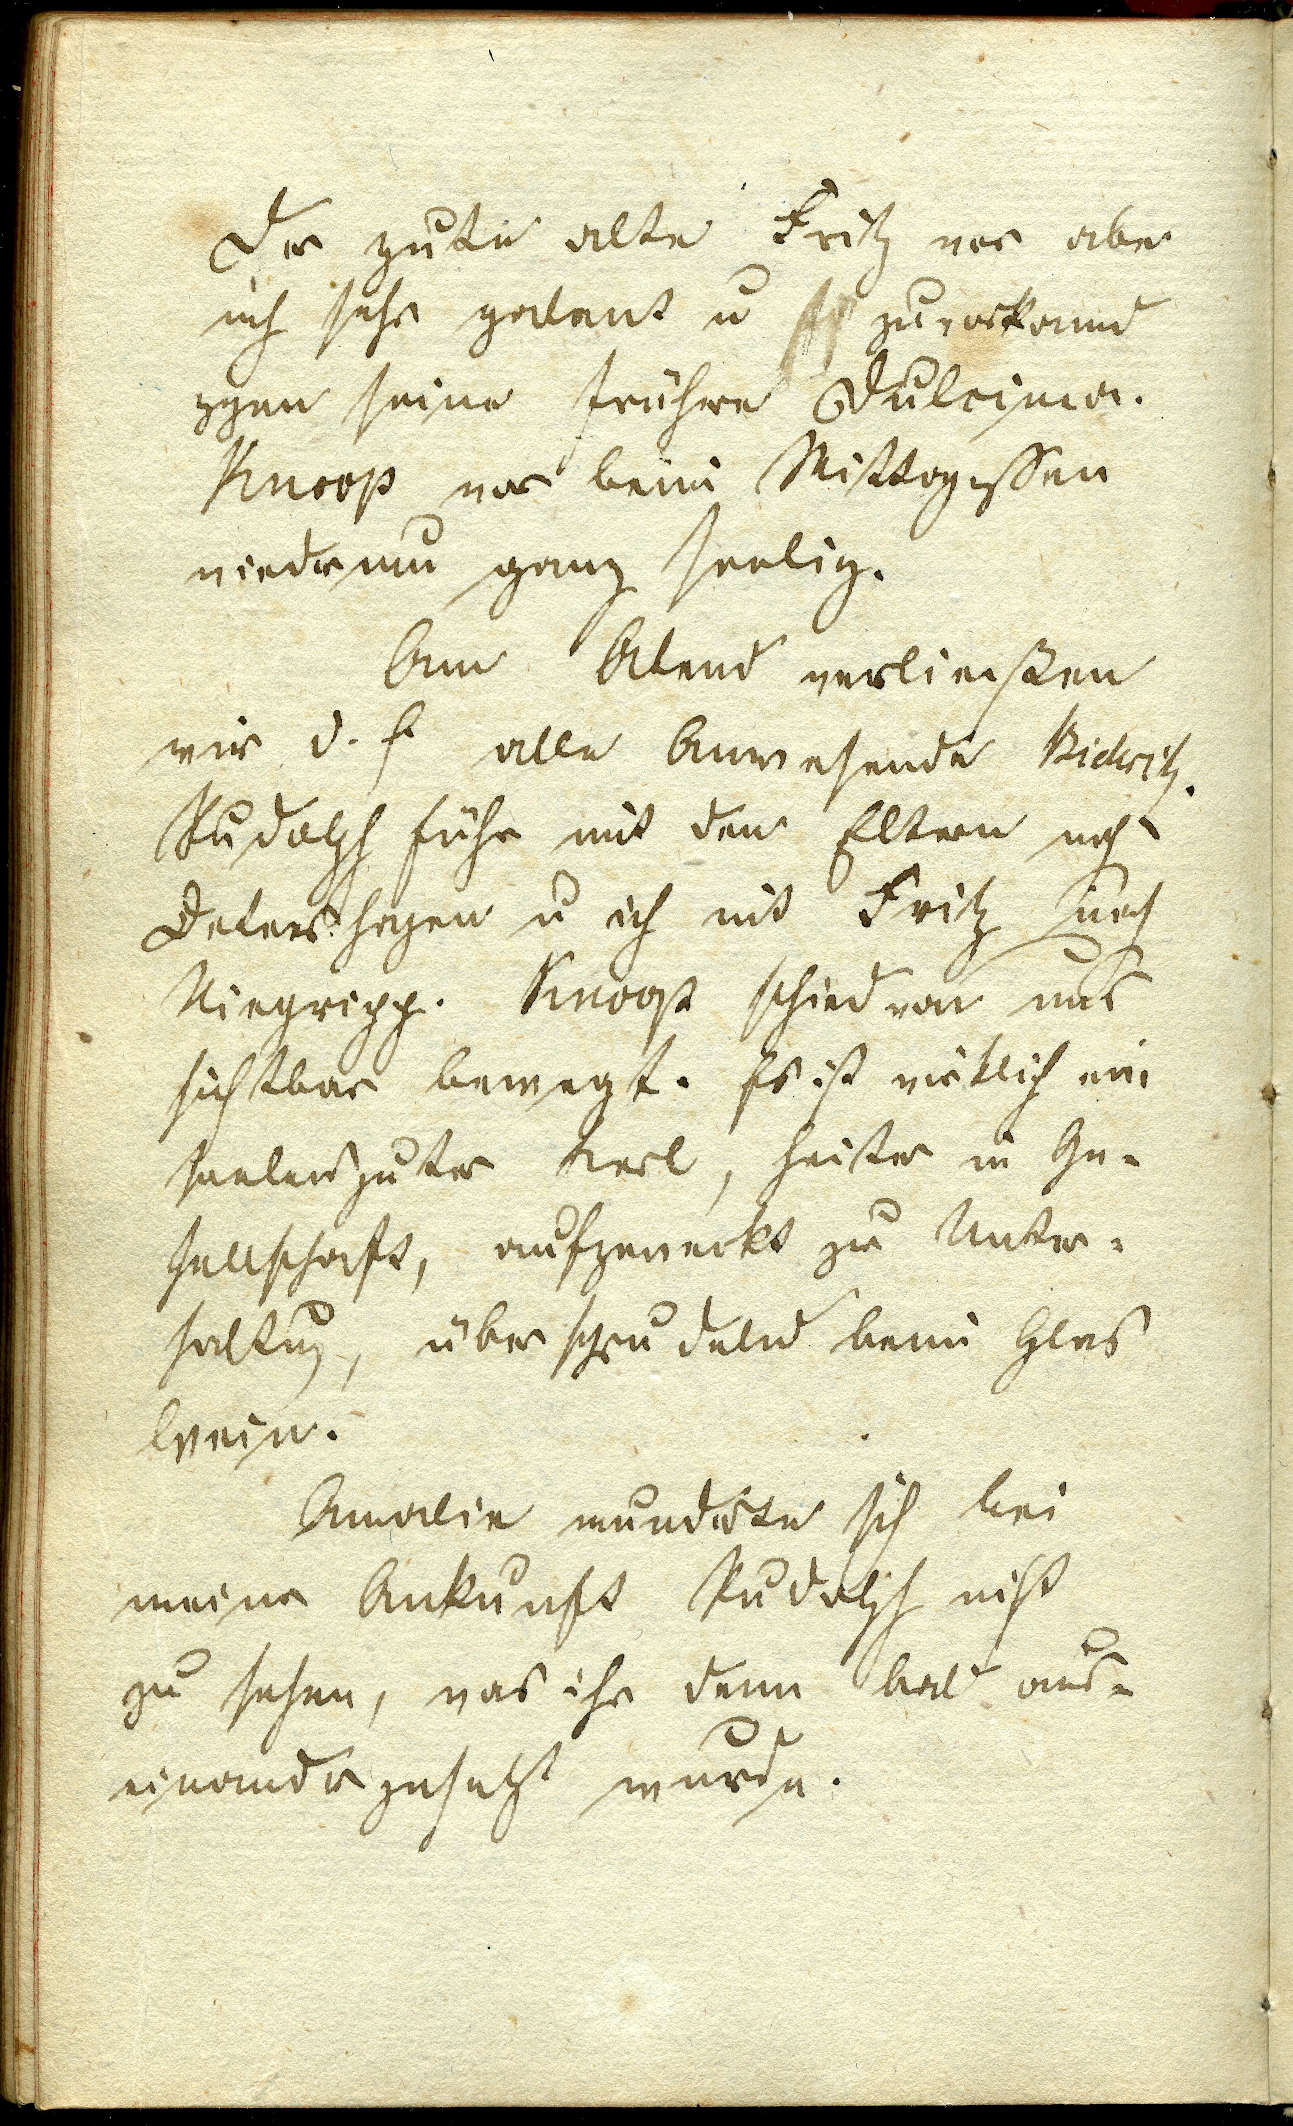 Der gute alte Fritz war aber
auch sehr galant u zuvorkomd
gegen seine frühere Dulcinea.
Knoop war beim Mittagessen
wiederum ganz seelig.
Am Abend verließen
wir d. h alle Anwesende Bideritz.
Rudolph fuhr mit den Eltern nach
Detershagen u ich mit Fritz nach
Niegripp. Knoop schied von uns
sichtbar bewegt. Es ist wirklich ein
seelensguter Kerl, heiter in Ge-
sellschaft, aufgeweckt zur Unter-
haltung, übersprudelnd beim Glas
Wein.
Amalie wunderte sich bei
meiner Ankunft Rudolph nicht
zu sehen, was ihr denn bald aus-
einandergesetzt wurde.